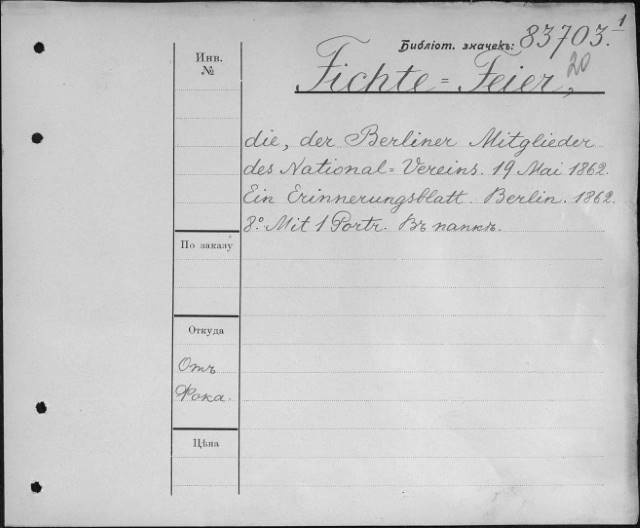 Библіот. значекъ: 83703.1
20
Инв.
№
Fichte=Feier,
die, der Berliner Mitglieder
des National=Vereins. 19 Mai 1862.
Ein Erinnerungsblatt. Berlin. 1862.
8º. Mit 1 Portr. Въ папкѣ.
По заказу
Откуда
Отъ
Фока.
Цѣна